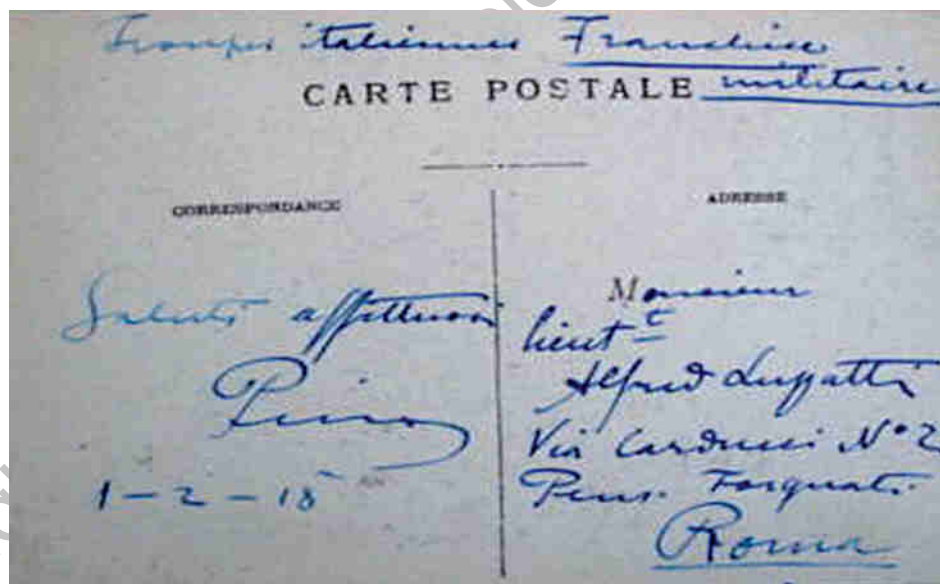 Troupes italiennes Franchise
CARTE POSTALE militaire
CORRESPONDANCE
ADRESSE
Saluti affettuosi
1-2-18
Monsieur
lieut.t
Alfred Luzzatti
Via Carducci N° 2
Pens. Torquati
Roma